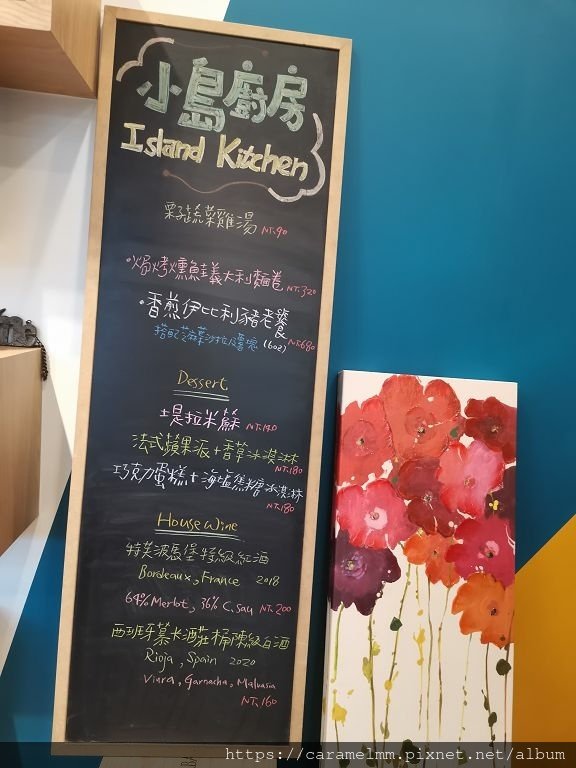 小島廚房
Island Kitchen
栗子蔬菜雞湯 NT.90
·焗烤燻魚義大利麵卷 NT.320
·香煎伊比利豬老饕
搭配芝麻葉沙拉及薯條 (6oz) NT.680
Dessert
提拉米蘇 NT.140
法式蘋果派+香草冰淇淋
NT.180
巧克力蛋糕+海鹽焦糖冰淇淋
NT.180
House Wine
特級紅酒
Bordeaux, France 2018
64% Merlot, 36% C.Sau NT.200
西班牙慕卡酒莊桶陳級白酒
Rioja, Spain 2020
Viura, Garnacha, Malvasia
NT.160
https://caramelmm.pixnet.net/album